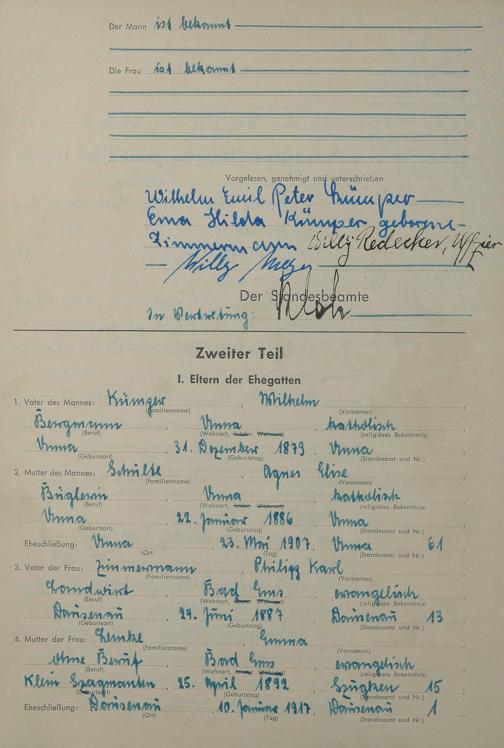 Der Mann ist bekannt
Die Frau ist bekannt
Vorgelesen, genehmigt und unterschrieben
Wilhelm Emil Peter Kümper
Erna Hilda Kümper geborene
Zimmermann Willy Redecker, Uffzier
Willy
Der Standesbeamte
In Vertretung:
Zweiter Teil
I. Eltern der Ehegatten
1. Vater des Mannes: Kümper, Wilhelm
(Familienname) (Vornamen)
Bergmann, Unna, katholisch
(Beruf) (Wohnort, letzter Wohnort) (religiöses Bekenntnis)
Unna, 31. Dezember 1879, Unna
(Geburtsort) (Geburtstag) (Standesamt und Nr.)
2. Mutter des Mannes: Schulte, Agnes Elise
(Familienname) (Vornamen)
Büglerin, Unna, katholisch
(Beruf) (Wohnort, letzter Wohnort) (religiöses Bekenntnis)
Unna, 22. Januar 1886, Unna
(Geburtsort) (Geburtstag) (Standesamt und Nr.)
Eheschließung: Unna, 23. Mai 1907, Unna 61
(Ort) (Tag) (Standesamt und Nr.)
3. Vater der Frau: Zimmermann, Philipp Karl
(Familienname) (Vornamen)
Landwirt, Bad Ems, evangelisch
(Beruf) (Wohnort, letzter Wohnort) (religiöses Bekenntnis)
Dausenau, 24. Juni 1887, Dausenau 13
(Geburtsort) (Geburtstag) (Standesamt und Nr.)
4. Mutter der Frau: Lemke, Emma
(Familienname) (Vornamen)
ohne Beruf, Bad Ems, evangelisch
(Beruf) (Wohnort, letzter Wohnort) (religiöses Bekenntnis)
Klein, 25. April 1892, 15
(Geburtsort) (Geburtstag) (Standesamt und Nr.)
Eheschließung: Dausenau, 10. Januar 1917, Dausenau 1
(Ort) (Tag) (Standesamt und Nr.)